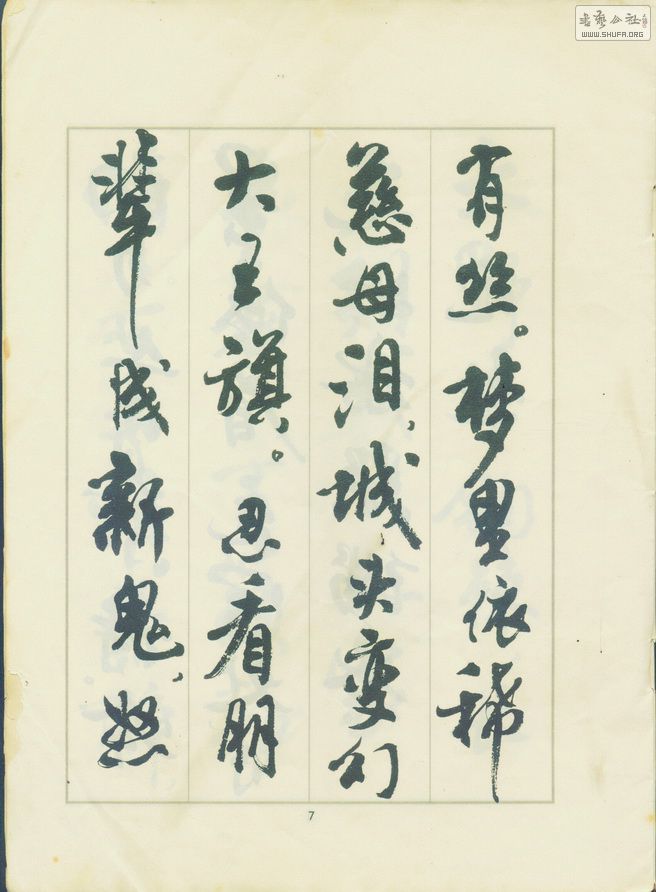 有丝。梦里依稀
慈母泪，城头变幻
大王旗。忍看朋
辈成新鬼，怒
7
书艺公社
WWW.SHUFA.ORG